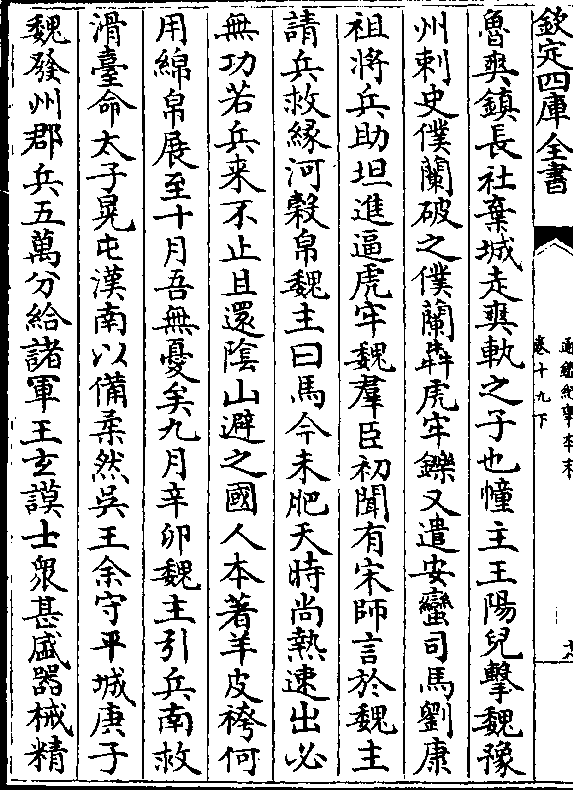 欽定四庫全書
通鑑紀事本末
卷十九下
魯爽鎮長社棄城走爽軌之子也幢主王陽兒擊魏豫
州刺史僕蘭破之僕蘭犇虎牢鑠又遣安蠻司馬劉康
祖將兵助坦進逼虎牢魏羣臣初聞有宋師言於魏主
請兵救緣河穀帛魏主曰馬今未肥天時尚熱速出必
無功若兵来不止且還隂山避之國人本著羊皮袴何
用綿帛展至十月吾無憂矣九月辛卯魏主引兵南救
滑臺命太子晃屯漢南以備柔然吳王余守平城庚子
魏發州郡兵五萬分給諸軍王玄謨士衆甚盛器械精